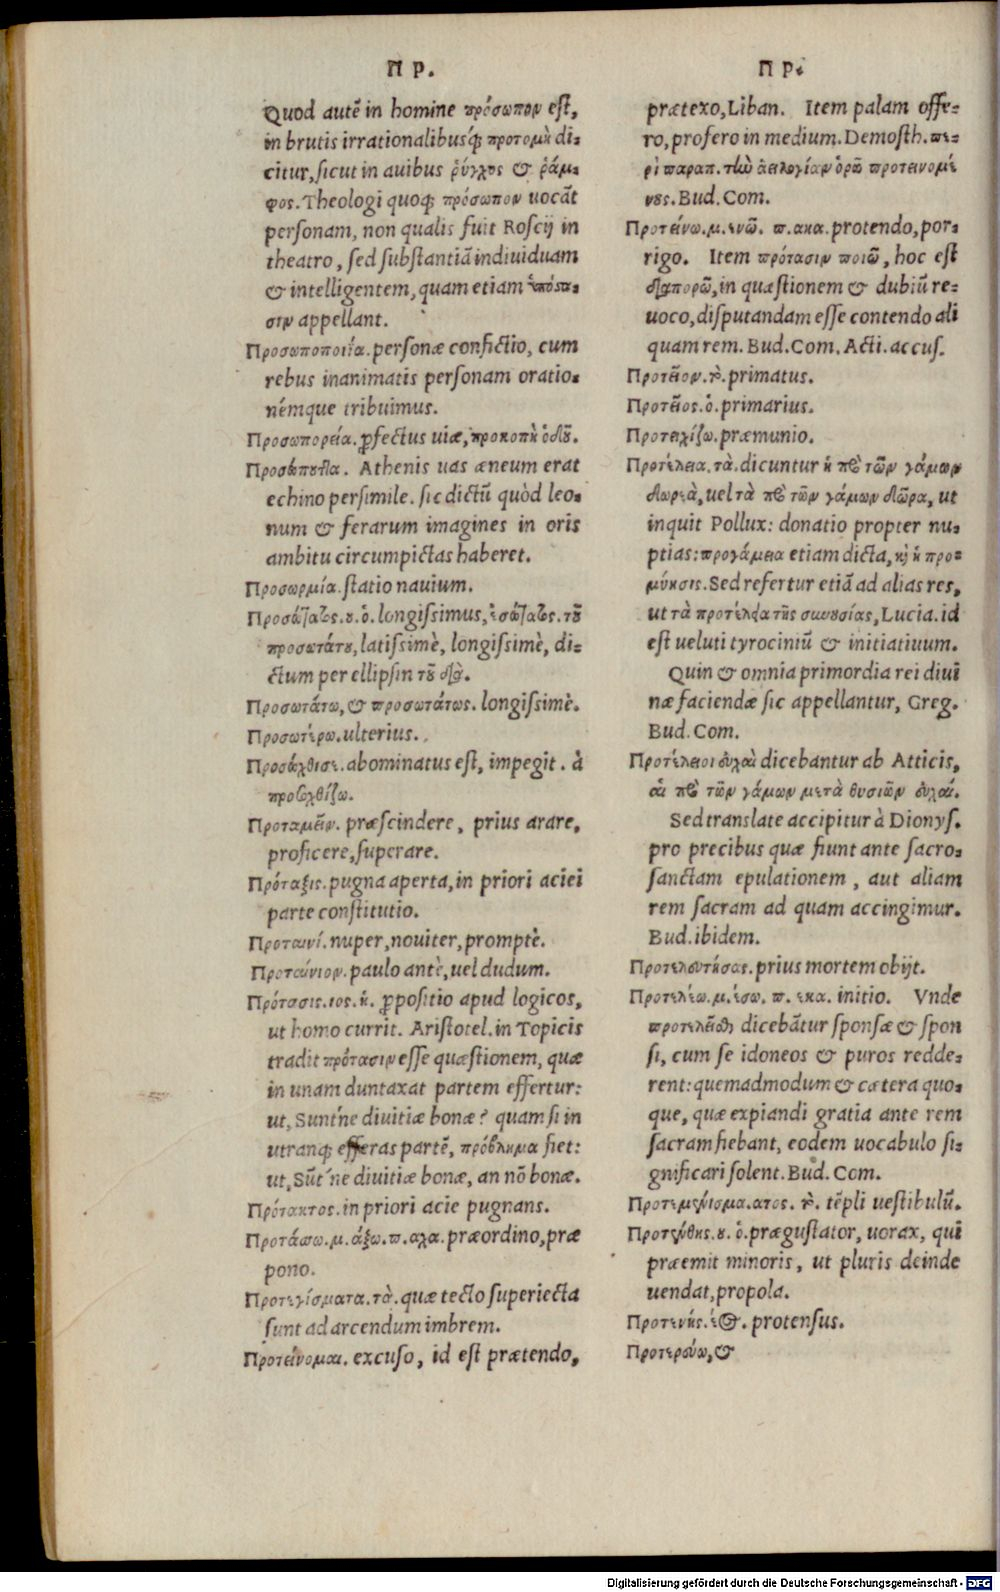 ΠΡ.
Quod autē in homine πρόσωπον eſt,
in brutis irrationalibusq́; προτομὴ di-
citur, ſicut in auibus ῥύγχος & ῥάμ-
φος. Theologi quoq; πρόσωπον uocāt
perſonam, non qualis fuit Roſcij in
theatro, ſed ſubſtantiā indiuiduam
& intelligentem, quam etiam ὑπόστα-
σιν appellant.
Προσωποποιΐα. perſonæ confictio, cum
rebus inanimatis perſonam oratio-
némque tribuimus.
Προσωπορεία. ꝓfectus uiæ, προκοπὴ ὁδοῦ.
Προσώπουττα. Athenis uas æneum erat
echino perſimile. ſic dictū quòd leo-
num & ferarum imagines in oris
ambitu circumpictas haberet.
Προσωρμία. ſtatio nauium.
longiſsimus, τοῦ
προσωτάτου, latiſsimè, longiſsimè, di-
ctum per ellipſin τοῦ διὰ.
Προσωτάτω, & προσωτάτως. longiſsimè.
Προσωτέρω. ulterius.
Προσώχθισε. abominatus eſt, impegit. à
προσοχθίζω.
Προταμεῖν. præſcindere, prius arare,
proficere, ſuperare.
Πρόταξις. pugna aperta, in priori aciei
parte conſtitutio.
Προταινί. nuper, nouiter, promptè.
Προταίνιον. paulo antè, uel dudum.
Πρότασις. ιος. ἡ. ꝓpoſitio apud logicos,
ut homo currit. Ariſtotel. in Topicis
tradit πρότασιν eſſe quæſtionem, quæ
in unam duntaxat partem effertur:
ut, Sunt'ne diuitiæ bonæ? quam ſi in
utranq; efferas partē, πρόβλημα fiet:
ut, Sūt'ne diuitiæ bonæ, an nō bonæ.
Πρότακτος. in priori acie pugnans.
Προτάσσω. μ. άξω. π. αχα. præordino, præ
pono.
Προτεγίσματα. τὰ. quæ tecto ſuperiecta
ſunt ad arcendum imbrem.
Προτείνομαι. excuſo, id eſt prætendo,
ΠΡ.
prætexo, Liban. Item palam offe-
ro, profero in medium. Demoſth. πε-
ρὶ παραπ. τὴν ἀειλογίαν ὁρῶ προτεινομέ
νους. Bud. Com.
Προτείνω. μ. ενῶ. π. ακα. protendo, por-
rigo. Item πρότασιν ποιῶ, hoc eſt
διαπορῶ, in quæſtionem & dubiū re-
uoco, diſputandam eſſe contendo ali
quam rem. Bud. Com. Acti. accuſ.
Προτεῖον. τὸ. primatus.
Προτεῖος. ὁ. primarius.
Προτειχίζω. præmunio.
Προτέλεια. τὰ. dicuntur ἡ πρὸ τῶν γάμων
δωρεὰ, uel τὰ πρὸ τῶν γάμων δῶρα, ut
inquit Pollux: donatio propter nu-
ptias: προγάμεια etiam dicta, καὶ ἡ προ-
μύησις. Sed refertur etiā ad alias res,
ut τὰ προτέλεια τῆς συνουσίας, Lucia. id
eſt ueluti tyrociniū & initiatiuum.
Quin & omnia primordia rei diui
næ faciendæ ſic appellantur, Greg.
Bud. Com.
Προτέλειοι εὐχαὶ dicebantur ab Atticis,
αἱ πρὸ τῶν γάμων μετὰ θυσιῶν εὐχαί.
Sed translate accipitur à Dionyſ.
pro precibus quæ fiunt ante ſacro-
ſanctam epulationem, aut aliam
rem ſacram ad quam accingimur.
Bud. ibidem.
Προτελευτήσας. prius mortem obijt.
Προτελέω. μ. έσω. π. εκα. initio. Vnde
προτελεῖσθαι dicebātur ſponſæ & ſpon
ſi, cum ſe idoneos & puros redde-
rent: quemadmodum & cætera quo-
que, quæ expiandi gratia ante rem
ſacram fiebant, eodem uocabulo ſi-
gnificari ſolent. Bud. Com.
Προτεμένισμα. ατος. τὸ. tēpli ueſtibulū.
Προτένθης. ου. ὁ. præguſtator, uorax, qui
præemit minoris, ut pluris deinde
uendat, propola.
Προτενής. έος. protenſus.
Προτερεύω, &
Digitalisierung gefördert durch die Deutsche Forschungsgemeinschaft - DFG